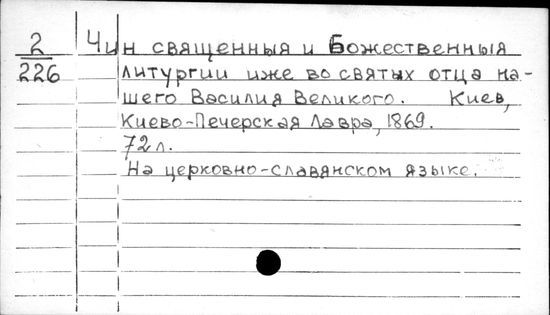 2 Чин священныя и Божественныя
226 литургии иже во святых отца на-
шего Василия Великого. Киев,
Киево-Печерская Лавра, 1869.
72 л.
На церковно-славянском языке.